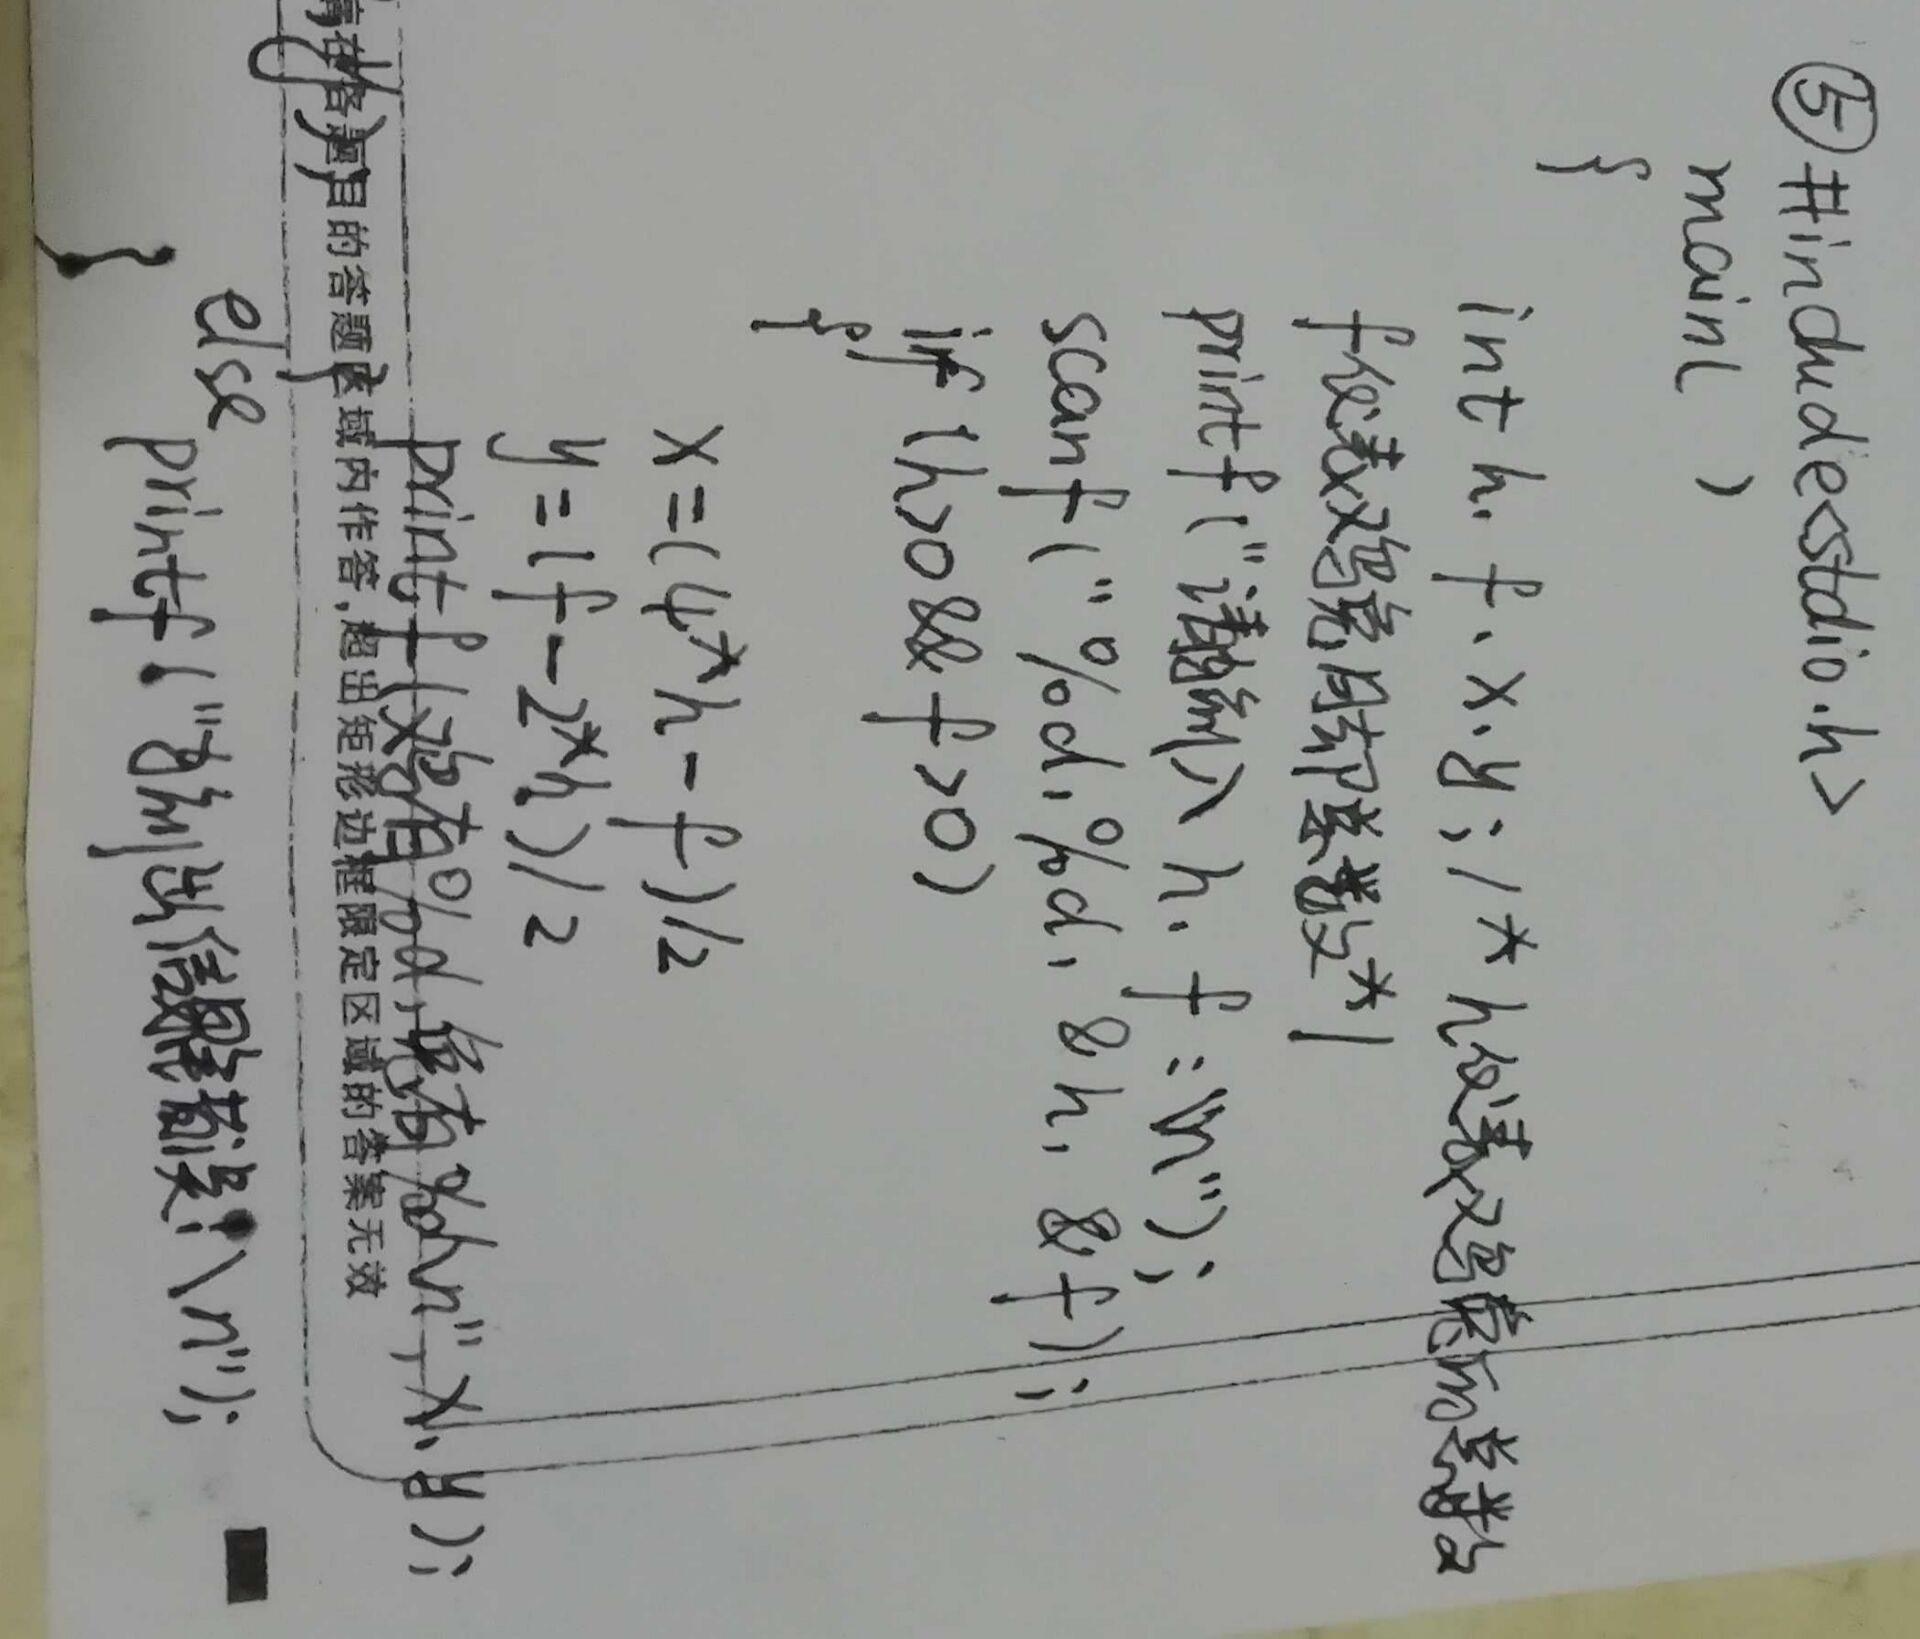 ⑤ #include<stdio.h>
main( )
{
int h, f, x, y; /* h代表鸡兔的总数
f代表鸡兔脚总数*/
printf("请输入h, f:\n");
scanf("%d,%d, &h, &f);
if(h>0&&f>0)
{
x=(4*h-f)/2
y=(f-2*h)/2
printf(鸡有%d,兔有%d\n", x, y);
请在各题目的答题区域内作答，超出矩形边框限定区域的答案无效
}
else
printf("输出信息有误!\n");
}